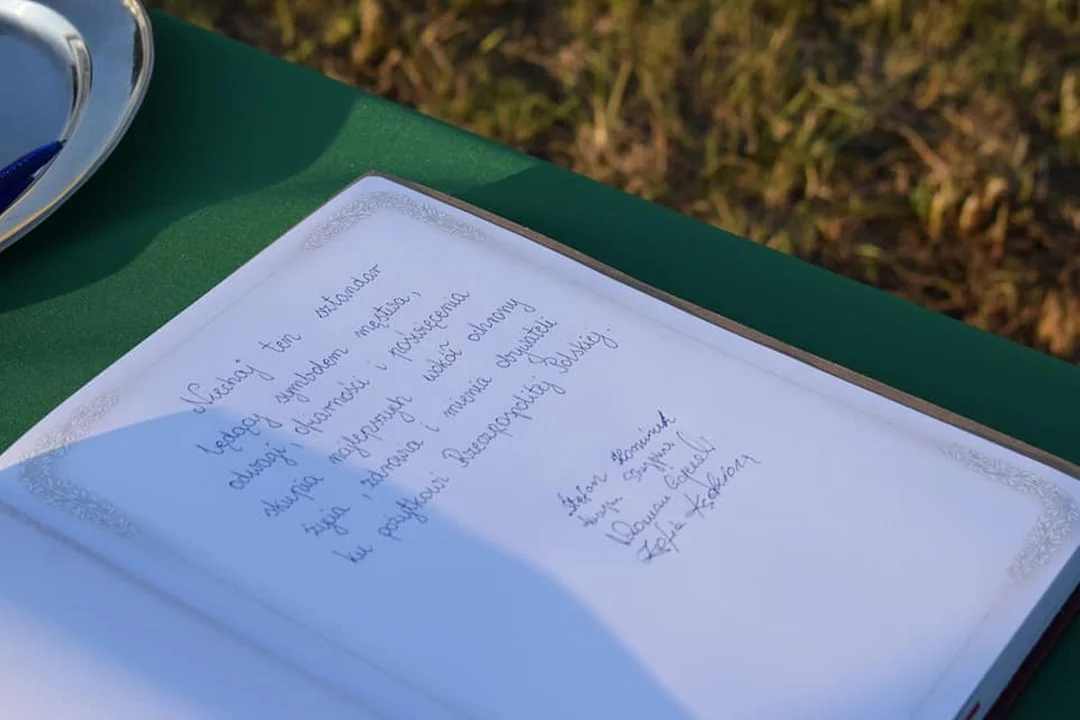 Niechaj ten sztandar
będący symbolem męstwa,
odwagi, ofiarności i poświęcenia
skupia najlepszych wokół ochrony
życia, zdrowia i mienia obywateli
ku pożytkowi Rzeczpospolitej Polskiej.
Stefan Kominek
Roman
Zofia